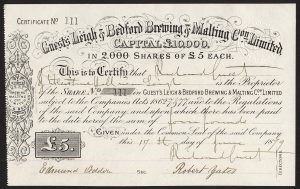 CERTIFICATE No 111
Guests Leigh & Bedford Brewing & Malting Coy Limited
CAPITAL £10,000.
IN 2,000 SHARES OF £5 EACH.
This is to Certify that
is the Proprietor
of the SHARE No 111 in GUESTS LEIGH & BEDFORD BREWING & MALTING COY LIMITED
subject to the Companies Acts, 1862 and to the Regulations
of the said Company, and upon which there has been paid
to the date hereof the sum of pounds
GIVEN under the Common Seal of the said Company
this 17th day of 18
£5.
Edmund SEC. Robert Gates